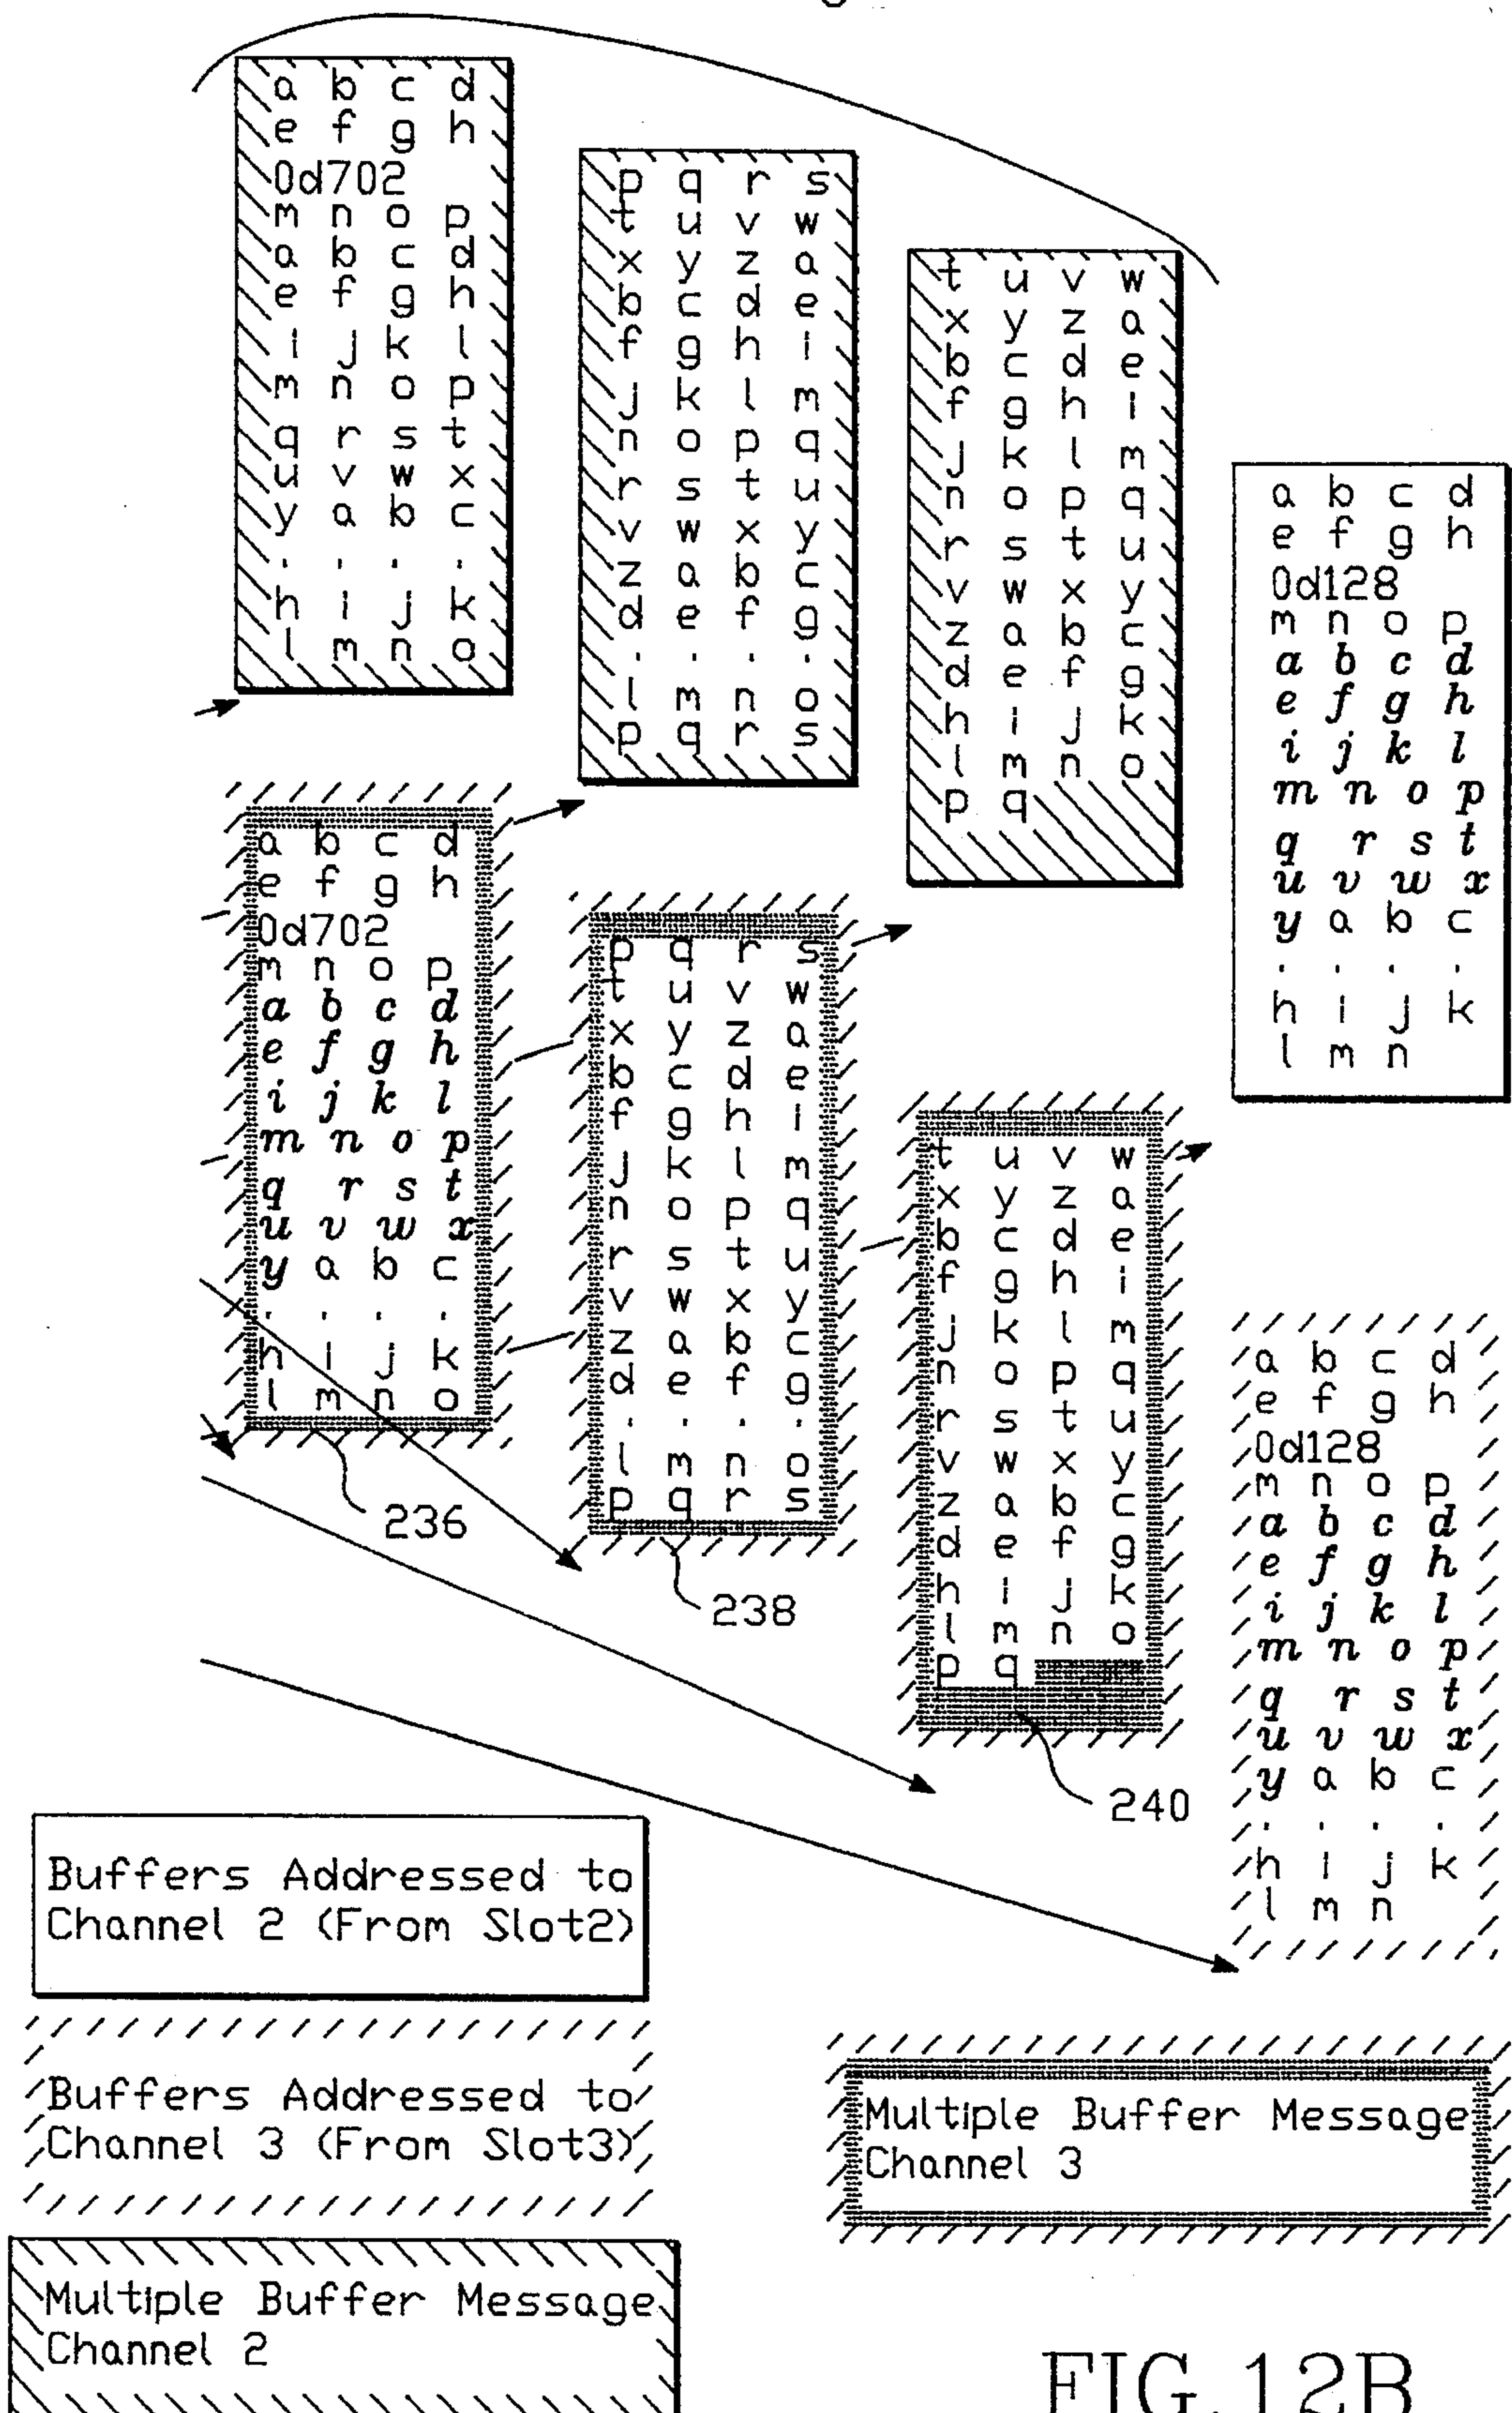 a b c d
e f g h
0d702
m n o p
a b c d
e f g h
i j k l
m n o p
q r s t
u v w x
y a b c
. . . .
h i j k
l m n o
p q r s
t u v w
x y z a
b c d e
f g h i
j k l m
n o p q
r s t u
v w x y
z a b c
d e f g
. . . .
l m n o
p q r s
t u v w
x y z a
b c d e
f g h i
j k l m
n o p q
r s t u
v w x y
z a b c
d e f g
h i j k
l m n o
p q
a b c d
e f g h
0d128
m n o p
a b c d
e f g h
i j k l
m n o p
q r s t
u v w x
y a b c
. . . .
h i j k
l m n
a b c d
e f g h
0d702
m n o p
a b c d
e f g h
i j k l
m n o p
q r s t
u v w x
y a b c
. . . .
h i j k
l m n o
236
p q r s
t u v w
x y z a
b c d e
f g h i
j k l m
n o p q
r s t u
v w x y
z a b c
d e f g
. . . .
l m n o
p q r s
238
t u v w
x y z a
b c d e
f g h i
j k l m
n o p q
r s t u
v w x y
z a b c
d e f g
h i j k
l m n o
p q
240
a b c d
e f g h
0d128
m n o p
a b c d
e f g h
i j k l
m n o p
q r s t
u v w x
y a b c
. . . .
h i j k
l m n
Buffers Addressed to
Channel 2 (From Slot2)
Buffers Addressed to
Channel 3 (From Slot3)
Multiple Buffer Message
Channel 3
Multiple Buffer Message
Channel 2
FIG.12B